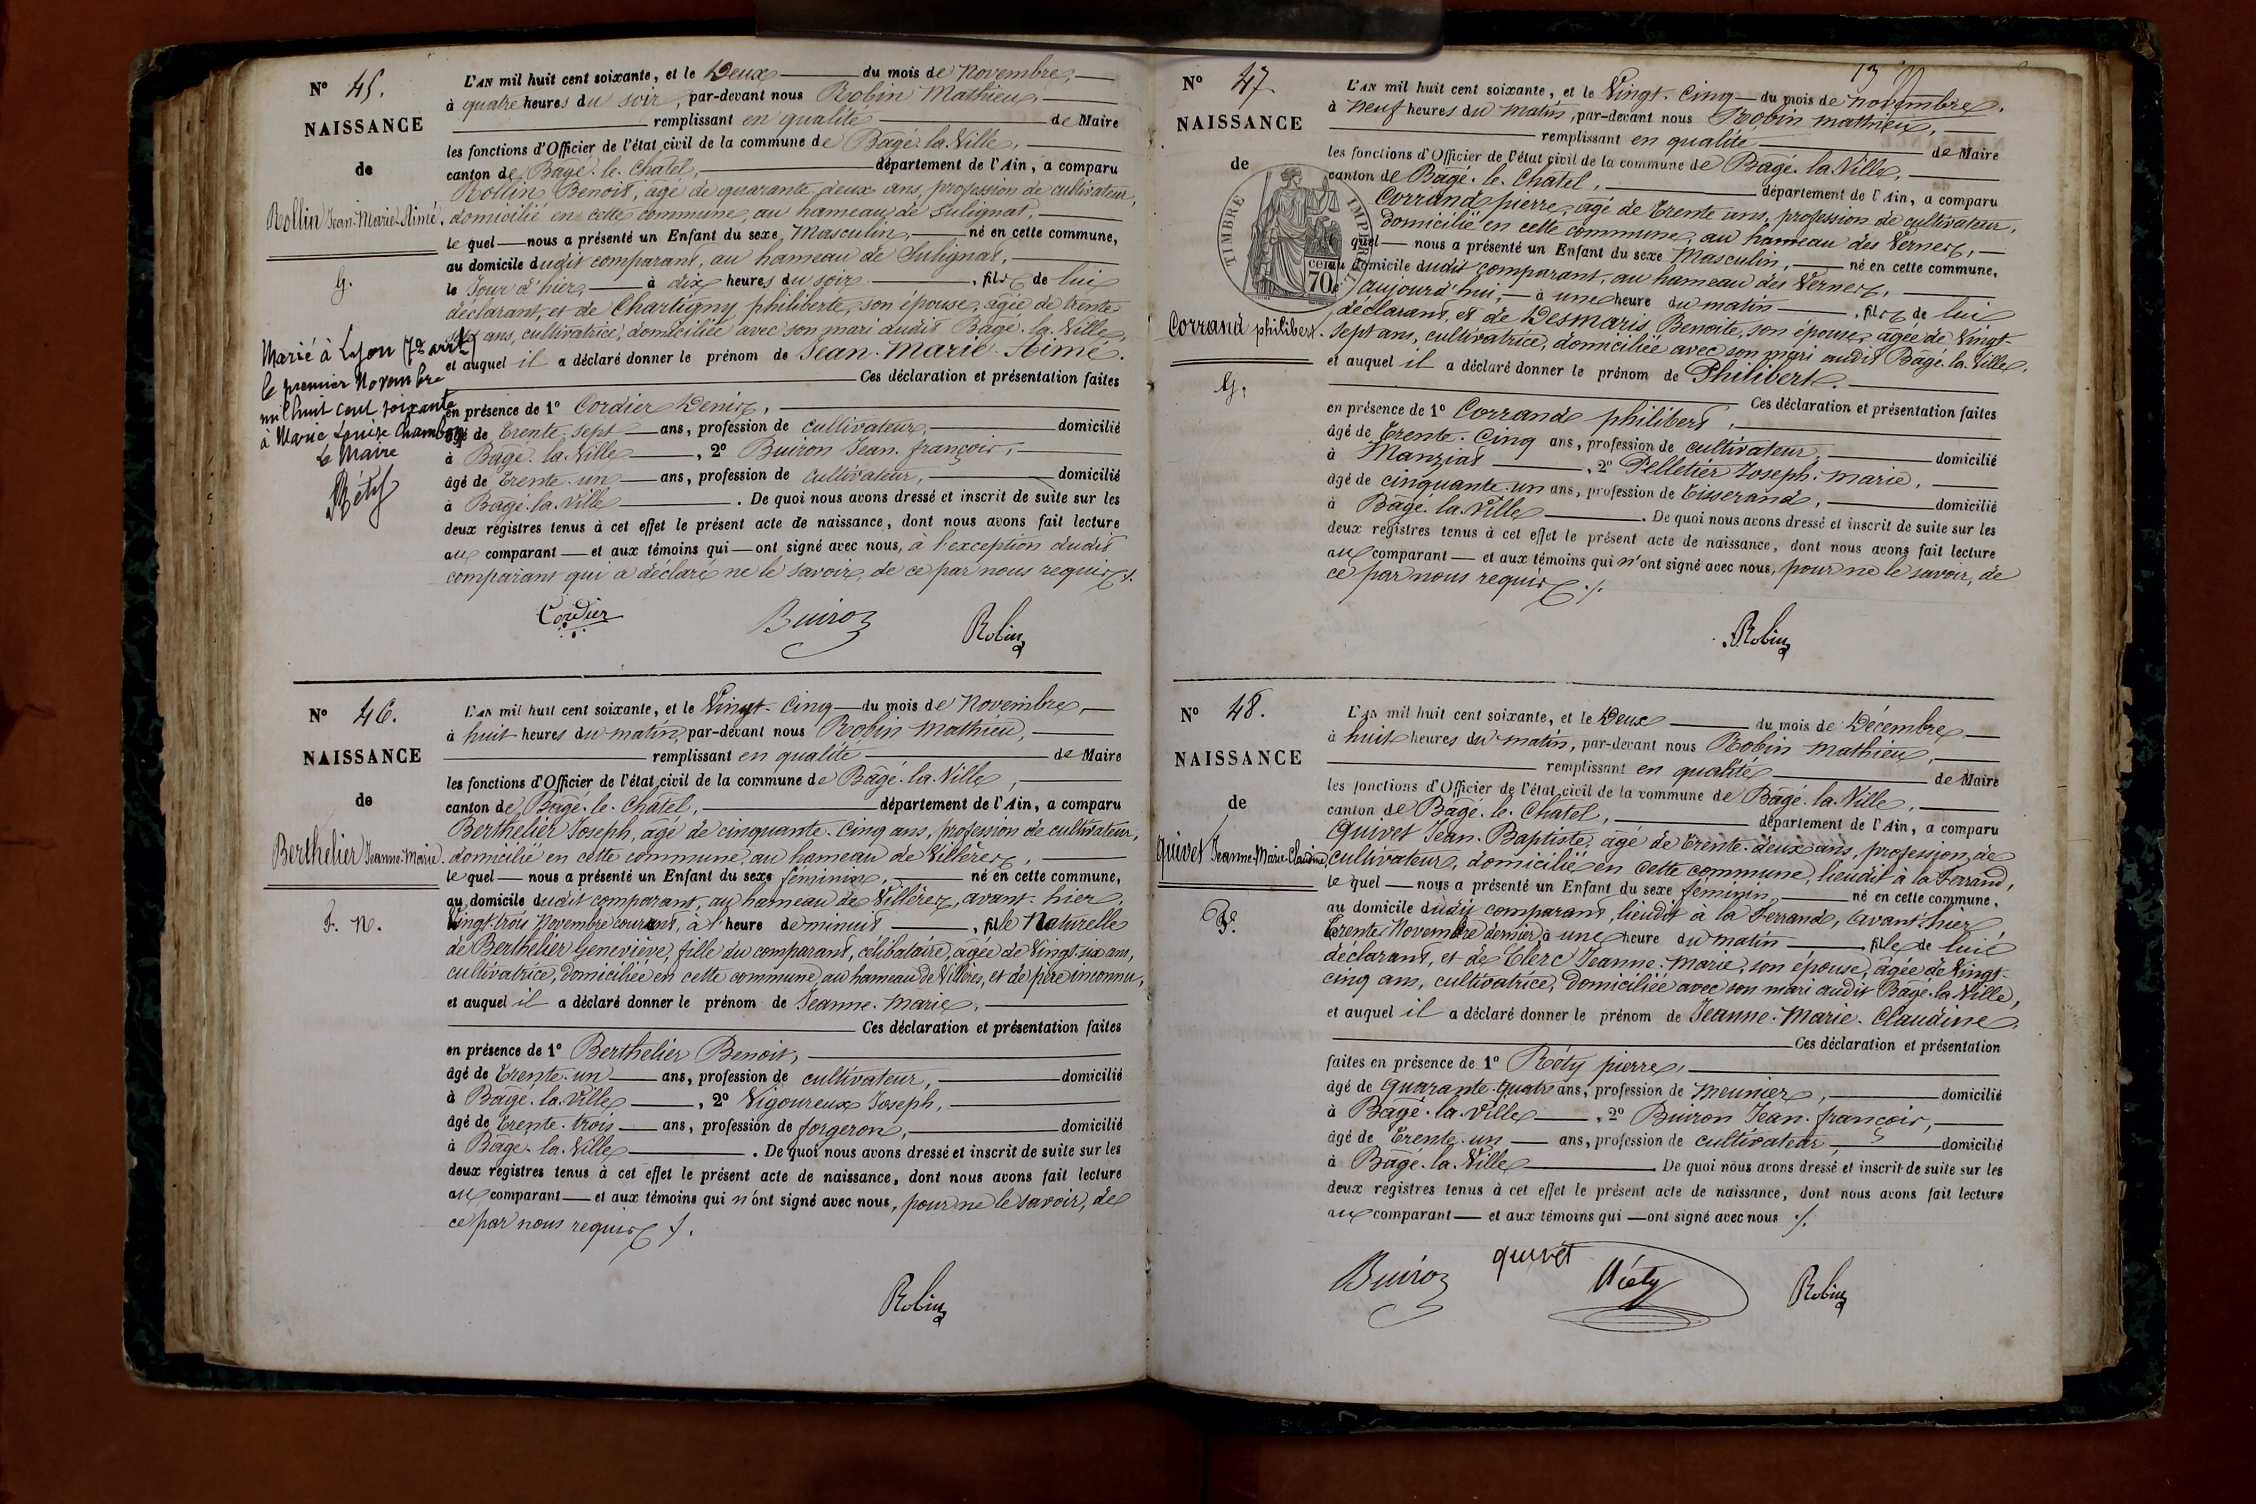 N° 45.
NAISSANCE
de
Rollin Jean-Marie-Aimé.
G.
Marié à Lyon (7e arrt)
le premier Novembre
mil huit cent soixante
à Marie Louise Chambon
Le Maire
Réty
L'AN mil huit cent soixante, et le Deux du mois de Novembre,
à quatre heures du soir, par-devant nous Robin Mathieu,
remplissant en qualité de Maire
les fonctions d'Officier de l'état civil de la commune de Bâgé-la-Ville,
canton de Bâgé-le-Châtel, département de l'Ain, a comparu
Rollin Benoit, âgé de quarante-deux ans, profession de cultivateur,
domicilié en cette commune, au hameau de Sulignat,
le quel nous a présenté un Enfant du sexe Masculin, né en cette commune,
au domicile dudit comparant, au hameau de Sulignat,
le Jour d'hier, à dix heures du soir, fils de lui
déclarant, et de Chartigny philiberte, son épouse, âgée de trente
ans, cultivatrice, domiciliée avec son mari audit Bâgé-la-Ville,
et auquel il a déclaré donner le prénom de Jean-Marie-Aimé.
Ces déclaration et présentation faites
en présence de 1° Cordier Denis,
âgé de Trente-sept ans, profession de cultivateur, domicilié
à Bâgé-la-Ville, 2° Buiron Jean-françois,
âgé de Trente-un ans, profession de cultivateur, domicilié
à Bâgé-la-Ville. De quoi nous avons dressé et inscrit de suite sur les
deux registres tenus à cet effet le présent acte de naissance, dont nous avons fait lecture
au comparant et aux témoins qui ont signé avec nous, à l'exception dudit
comparant qui a déclaré ne le savoir, de ce par nous requis ./.
Cordier Buiron Robin
N° 46.
NAISSANCE
de
Berthelier Jeanne-Marie.
F. N.
L'AN mil huit cent soixante, et le Vingt-Cinq du mois de Novembre,
à huit heures du matin, par-devant nous Robin Mathieu,
remplissant en qualité de Maire
les fonctions d'Officier de l'état civil de la commune de Bâgé-la-Ville,
canton de Bâgé-le-Châtel, département de l'Ain, a comparu
Berthelier Joseph, âgé de cinquante-cinq ans, profession de cultivateur,
domicilié en cette commune, au hameau de Villères,
le quel nous a présenté un Enfant du sexe féminin, né en cette commune,
au domicile dudit comparant, au hameau de Villères, avant-hier,
Vingt-trois Novembre courant, à l'heure de minuit, fille Naturelle
de Berthelier Geneviève, fille du comparant, célibataire, âgée de Vingt-six ans,
cultivatrice, domiciliée en cette commune, au hameau de Villères, et de père inconnu,
et auquel il a déclaré donner le prénom de Jeanne-Marie,
Ces déclaration et présentation faites
en présence de 1° Berthelier Benoit,
âgé de Trente-un ans, profession de cultivateur, domicilié
à Bâgé-la-Ville, 2° Vigoureux Joseph,
âgé de Trente-trois ans, profession de forgeron, domicilié
à Bâgé-la-Ville. De quoi nous avons dressé et inscrit de suite sur les
deux registres tenus à cet effet le présent acte de naissance, dont nous avons fait lecture
au comparant et aux témoins qui n'ont signé avec nous, pour ne le savoir, de
ce par nous requis ./.
Robin
N° 47.
NAISSANCE
de
TIMBRE IMPERIAL
70c
Corrand philibert.
G.
13
L'AN mil huit cent soixante, et le Vingt-Cinq du mois de novembre,
à Neuf heures du matin, par-devant nous Robin Mathieu,
remplissant en qualité de Maire
les fonctions d'Officier de l'état civil de la commune de Bâgé-la-Ville,
canton de Bâgé-le-Châtel, département de l'Ain, a comparu
Corrand pierre, âgé de Trente ans, profession de cultivateur,
domicilié en cette commune, au hameau des Vernes,
quel nous a présenté un Enfant du sexe Masculin, né en cette commune,
au domicile dudit comparant, au hameau des Vernes,
aujourd'hui, à une heure du matin, fils de lui
déclarant, et de Desmaris Benoite, son épouse, âgée de Vingt-
sept ans, cultivatrice, domiciliée avec son mari audit Bâgé-la-Ville,
et auquel il a déclaré donner le prénom de Philibert.
Ces déclaration et présentation faites
en présence de 1° Corrand philibert,
âgé de Trente-Cinq ans, profession de cultivateur, domicilié
à Manziat, 2° Pelletier Joseph-marie,
âgé de cinquante-un ans, profession de Tisserand, domicilié
à Bâgé-la-Ville. De quoi nous avons dressé et inscrit de suite sur les
deux registres tenus à cet effet le présent acte de naissance, dont nous avons fait lecture
au comparant et aux témoins qui n'ont signé avec nous, pour ne le savoir, de
ce par nous requis ./.
Robin
N° 48.
NAISSANCE
de
Quivet Jeanne-Marie-Claudine,
L'AN mil huit cent soixante, et le Deux du mois de Décembre
à huit heures du matin, par-devant nous Robin Mathieu,
remplissant en qualité de Maire
les fonctions d'Officier de l'état civil de la commune de Bâgé-la-Ville,
canton de Bâgé-le-Châtel, département de l'Ain, a comparu
Quivet Jean-Baptiste, âgé de Trente-deux ans, profession de
cultivateur, domicilié en cette commune, lieudit à la Ferrand,
le quel nous a présenté un Enfant du sexe féminin, né en cette commune,
au domicile dudit comparant, lieudit à la Ferrand, avant-hier
Trente Novembre dernier, à une heure du matin, fille de lui
déclarant, et de Clerc Jeanne-Marie, son épouse, âgée de Vingt-
cinq ans, cultivatrice, domiciliée avec son mari audit Bâgé-la-Ville,
et auquel il a déclaré donner le prénom de Jeanne-Marie-Claudine.
Ces déclaration et présentation
faites en présence de 1° Réty pierre,
âgé de quarante-quatre ans, profession de Meunier, domicilié
à Bâgé-la-Ville, 2° Buiron Jean-françois,
âgé de Trente-un ans, profession de cultivateur, domicilié
à Bâgé-la-Ville. De quoi nous avons dressé et inscrit de suite sur les
deux registres tenus à cet effet le présent acte de naissance, dont nous avons fait lecture
au comparant et aux témoins qui ont signé avec nous ./.
Buiron quivet Réty Robin